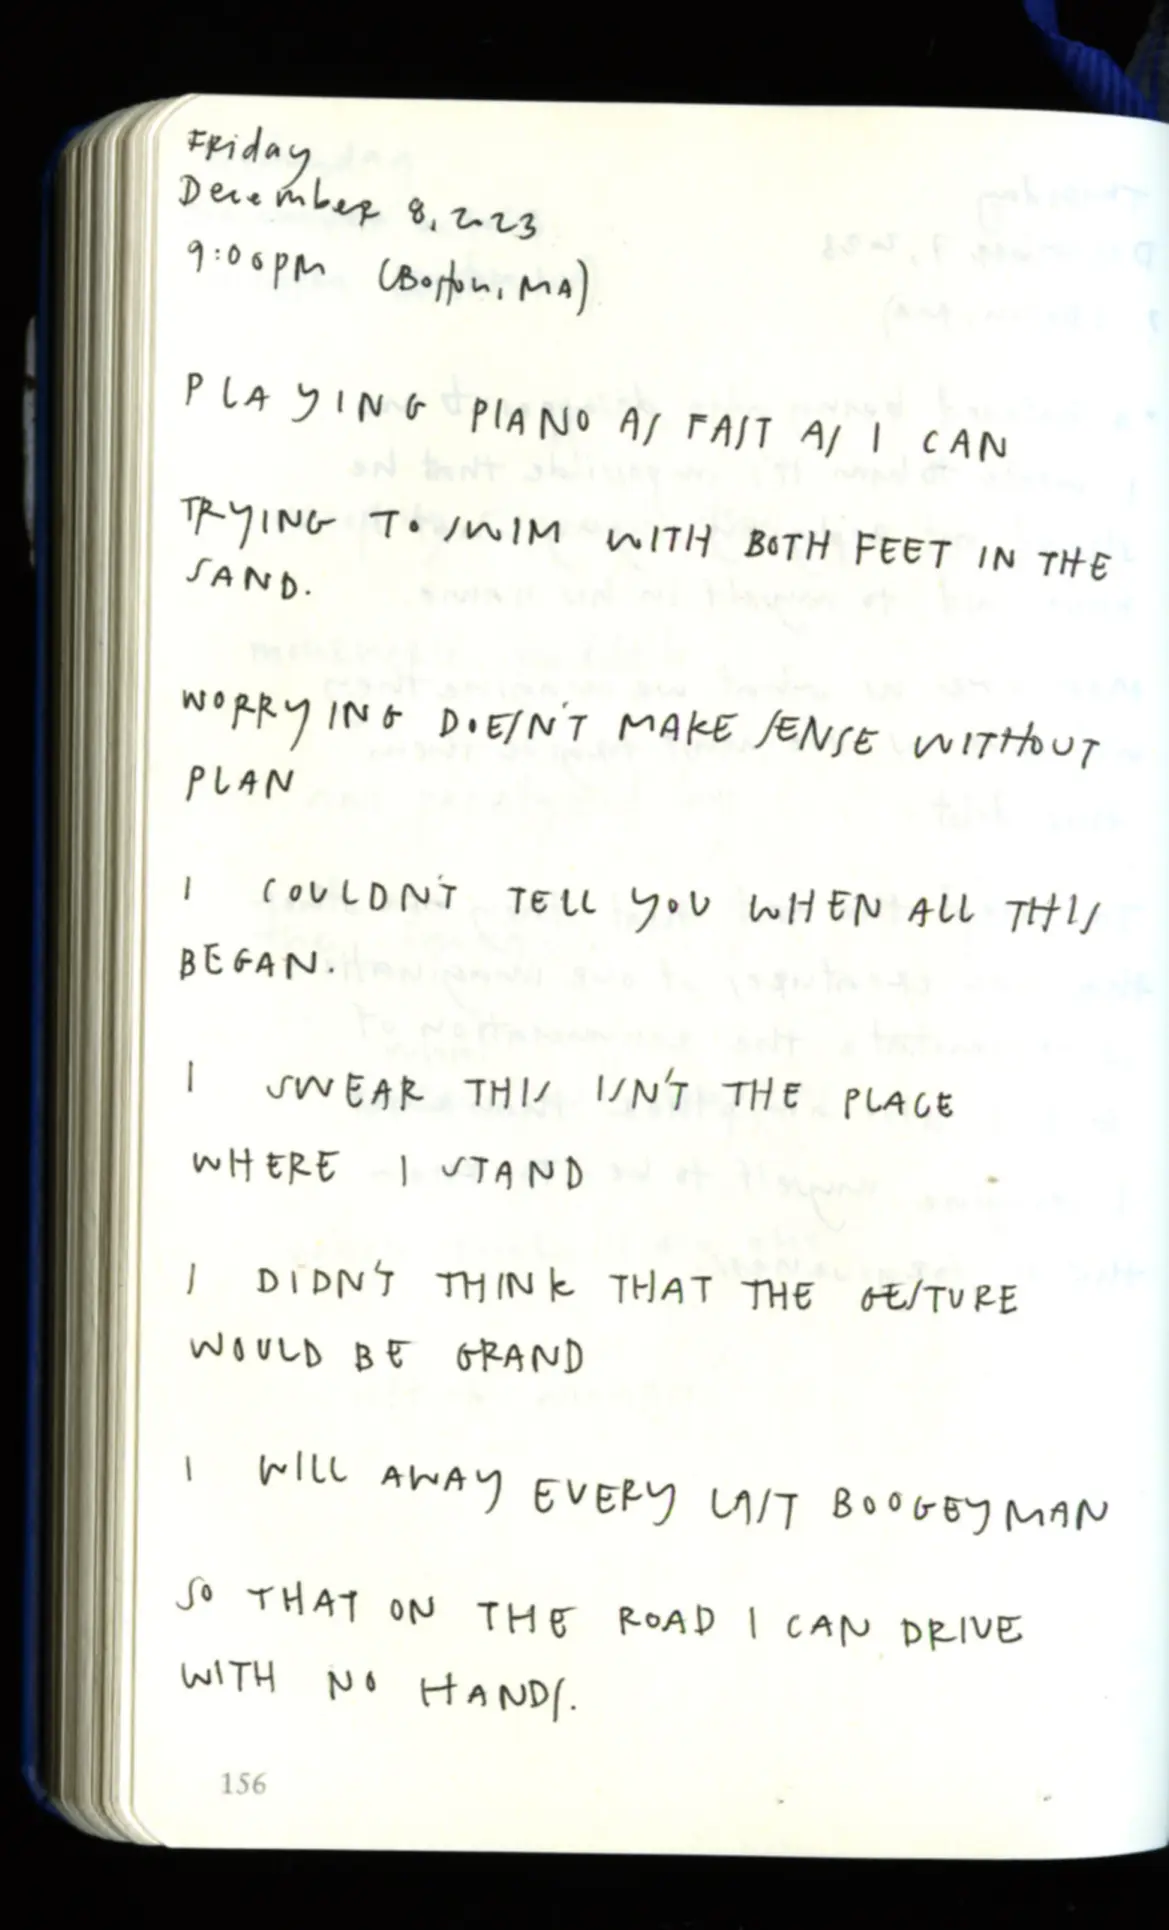 Friday
December 8, 2023
9:06pm (Boston, MA)
PLAYING PIANO AS FAST AS I CAN
TRYING TO SWIM WITH BOTH FEET IN THE
SAND.
WORRYING DOESN'T MAKE SENSE WITHOUT
PLAN
I COULDN'T TELL YOU WHEN ALL THIS
BEGAN.
I SWEAR THIS ISN'T THE PLACE
WHERE I STAND
I DIDN'T THINK THAT THE GESTURE
WOULD BE GRAND
I WILL AWAY EVERY LAST BOOGEYMAN
SO THAT ON THE ROAD I CAN DRIVE
WITH NO HANDS.
156